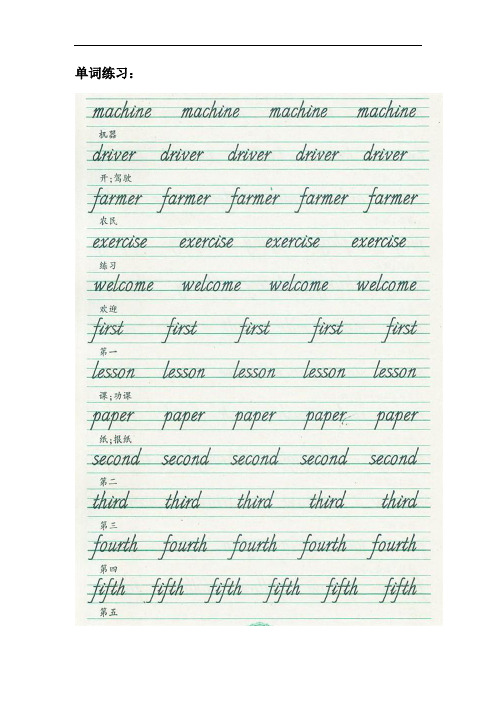 单词练习：
machine machine machine machine
机器
driver driver driver driver driver
开；驾驶
farmer farmer farmer farmer farmer
农民
exercise exercise exercise exercise
练习
welcome welcome welcome welcome
欢迎
first first first first first
第一
lesson lesson lesson lesson lesson
课；功课
paper paper paper paper paper
纸；报纸
second second second second second
第二
third third third third third
第三
fourth fourth fourth fourth fourth
第四
fifth fifth fifth fifth fifth fifth
第五